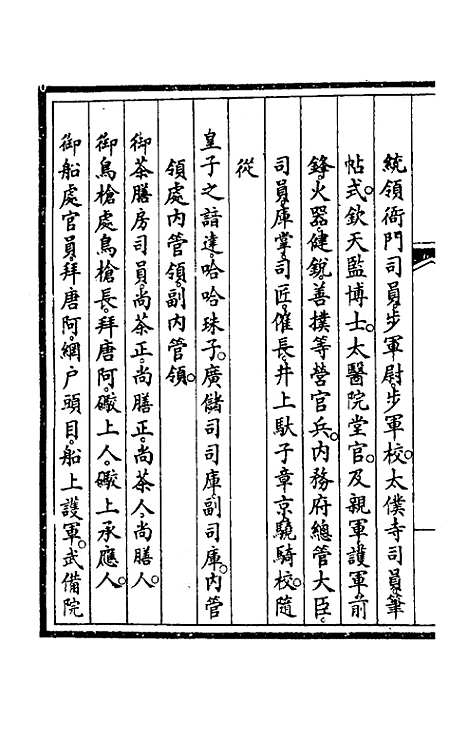 統領衙門司員。步軍尉。步軍校。太僕寺司員。筆
帖式。欽天監博士。太醫院堂官。及親軍。護軍。前
鋒。火器。健銳。善撲等營官兵。內務府總管大臣。
司員。庫掌。司匠。催長。井上馱子章京。驍騎校。隨
從
皇子之諳達。哈哈珠子。廣儲司司庫。副司庫。內管
領處內管領。副內管領。
御茶膳房司員。尚茶正。尚膳正。尚茶人。尚膳人。
御鳥槍處鳥槍長。拜唐阿。礮上人。礮上承應人。
御船處官員。拜唐阿。網戶頭目。船上護軍。武備院